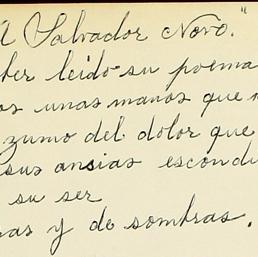 A Salvador Novo."
ber leido su poema
os unas manos que
zumo del dolor que
sus ansias escondi
su ser
as y de sombras.